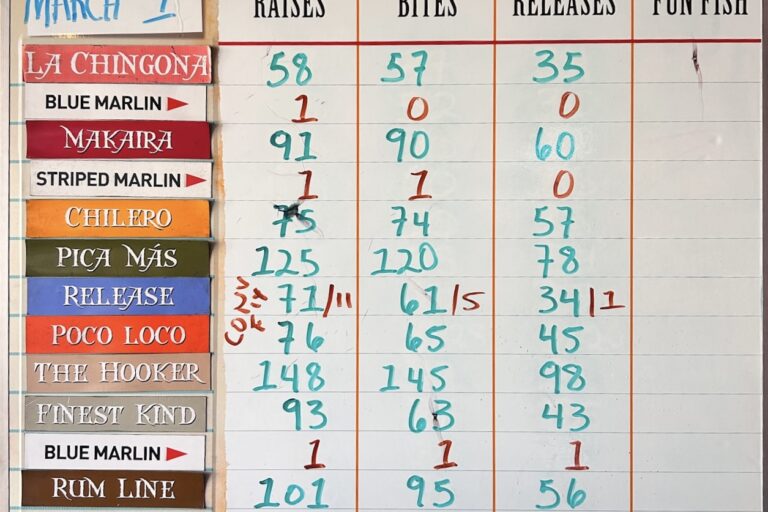 MARCH 1 RAISES BITES RELEASES FUN FISH
LA CHINGONA 58 57 35
BLUE MARLIN 1 0 0
MAKAIRA 91 90 60
STRIPED MARLIN 1 1 0
CHILERO 75 74 57
PICA MÁS 125 120 78
RELEASE 71/11 61/5 34/1
POCO LOCO 76 65 45
THE HOOKER 148 145 98
FINEST KIND 93 63 43
BLUE MARLIN 1 1 1
RUM LINE 101 95 56